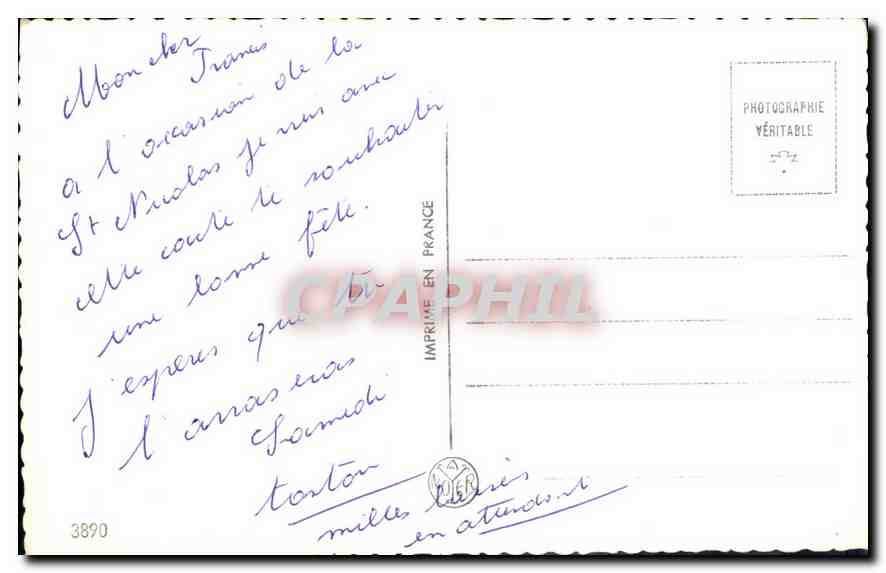 Mon cher
Francis
a l'occasion de la
St Nicolas je viens avec
cette carte te souhaiter
une bonne fête.
J'esperes que tu
l'
Samedi
tonton
milles baisés
en attendant
3890
IMPRIMÉ EN FRANCE
PHOTOGRAPHIE
VÉRITABLE
CPAPHIL